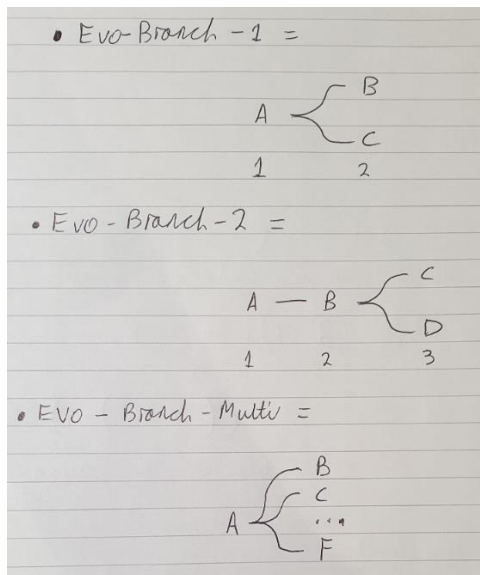 • Evo-Branch-1 =
B
A
C
1 2
• Evo-Branch-2 =
C
A — B
D
1 2 3
• Evo-Branch-Multi =
B
C
A ...
F